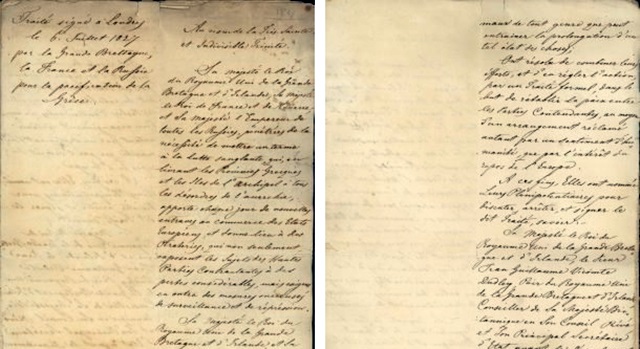 Traité signé à Londres
le 6 Juillet 1827
par la Grande Brettagne,
la France et la Russie
pour la pacification de la
Grèce.
Au nom de la Très Sainte
et Indivisible Trinité.
Sa Majesté le Roi
du Royaume Uni de la Grande
Bretagne et d'Irlande, Sa Majesté
le Roi de France et de Navarre,
et Sa Majesté l'Empereur de
toutes les Russies, pénétrées de la
nécessité de mettre un terme
à la lutte sanglante qui, en
livrant les Provinces Grecques
et les Iles de l'Archipel à tous
les désordres de l'anarchie,
apporte chaque jour de nouvelles
entraves au commerce des Etats
Européens, et donne lieu à des
Pirateries, qui non seulement
exposent les Sujets des Hautes
Parties Contractantes à des
pertes considérables, mais exigent
en outre des mesures onéreuses
de surveillance et de répression.
Sa Majesté le Roi du
Royaume Uni de la Grande
Bretagne et d'Irlande et Sa
maux de tout genre que peut
entrainer la prolongation d'un
tel état des choses,
Ont résolu de combiner leurs
efforts, et d'en régler l'action
par un Traité formel, dans le
but de rétablir la paix entre
les Parties Contendantes, au moyen
d'un arrangement réclamé
autant par un sentiment d'hu-
manité, que par l'intérêt du
repos de l'Europe.
A ces fins, Elles ont nommé
Leurs Plénipotentiaires pour
discuter, arrêter, et signer le
dit Traité, savoir:
Sa Majesté le Roi du
Royaume Uni de la Grande Breta-
gne et d'Irlande, le Sieur
Jean Guillaume Vicomte
Dudley, Pair du Royaume Uni
de la Grande Bretagne et d'Irlande
Conseiller de Sa Majesté Bri-
tannique en Son Conseil Privé
et Son Principal Secrétaire
d'Etat